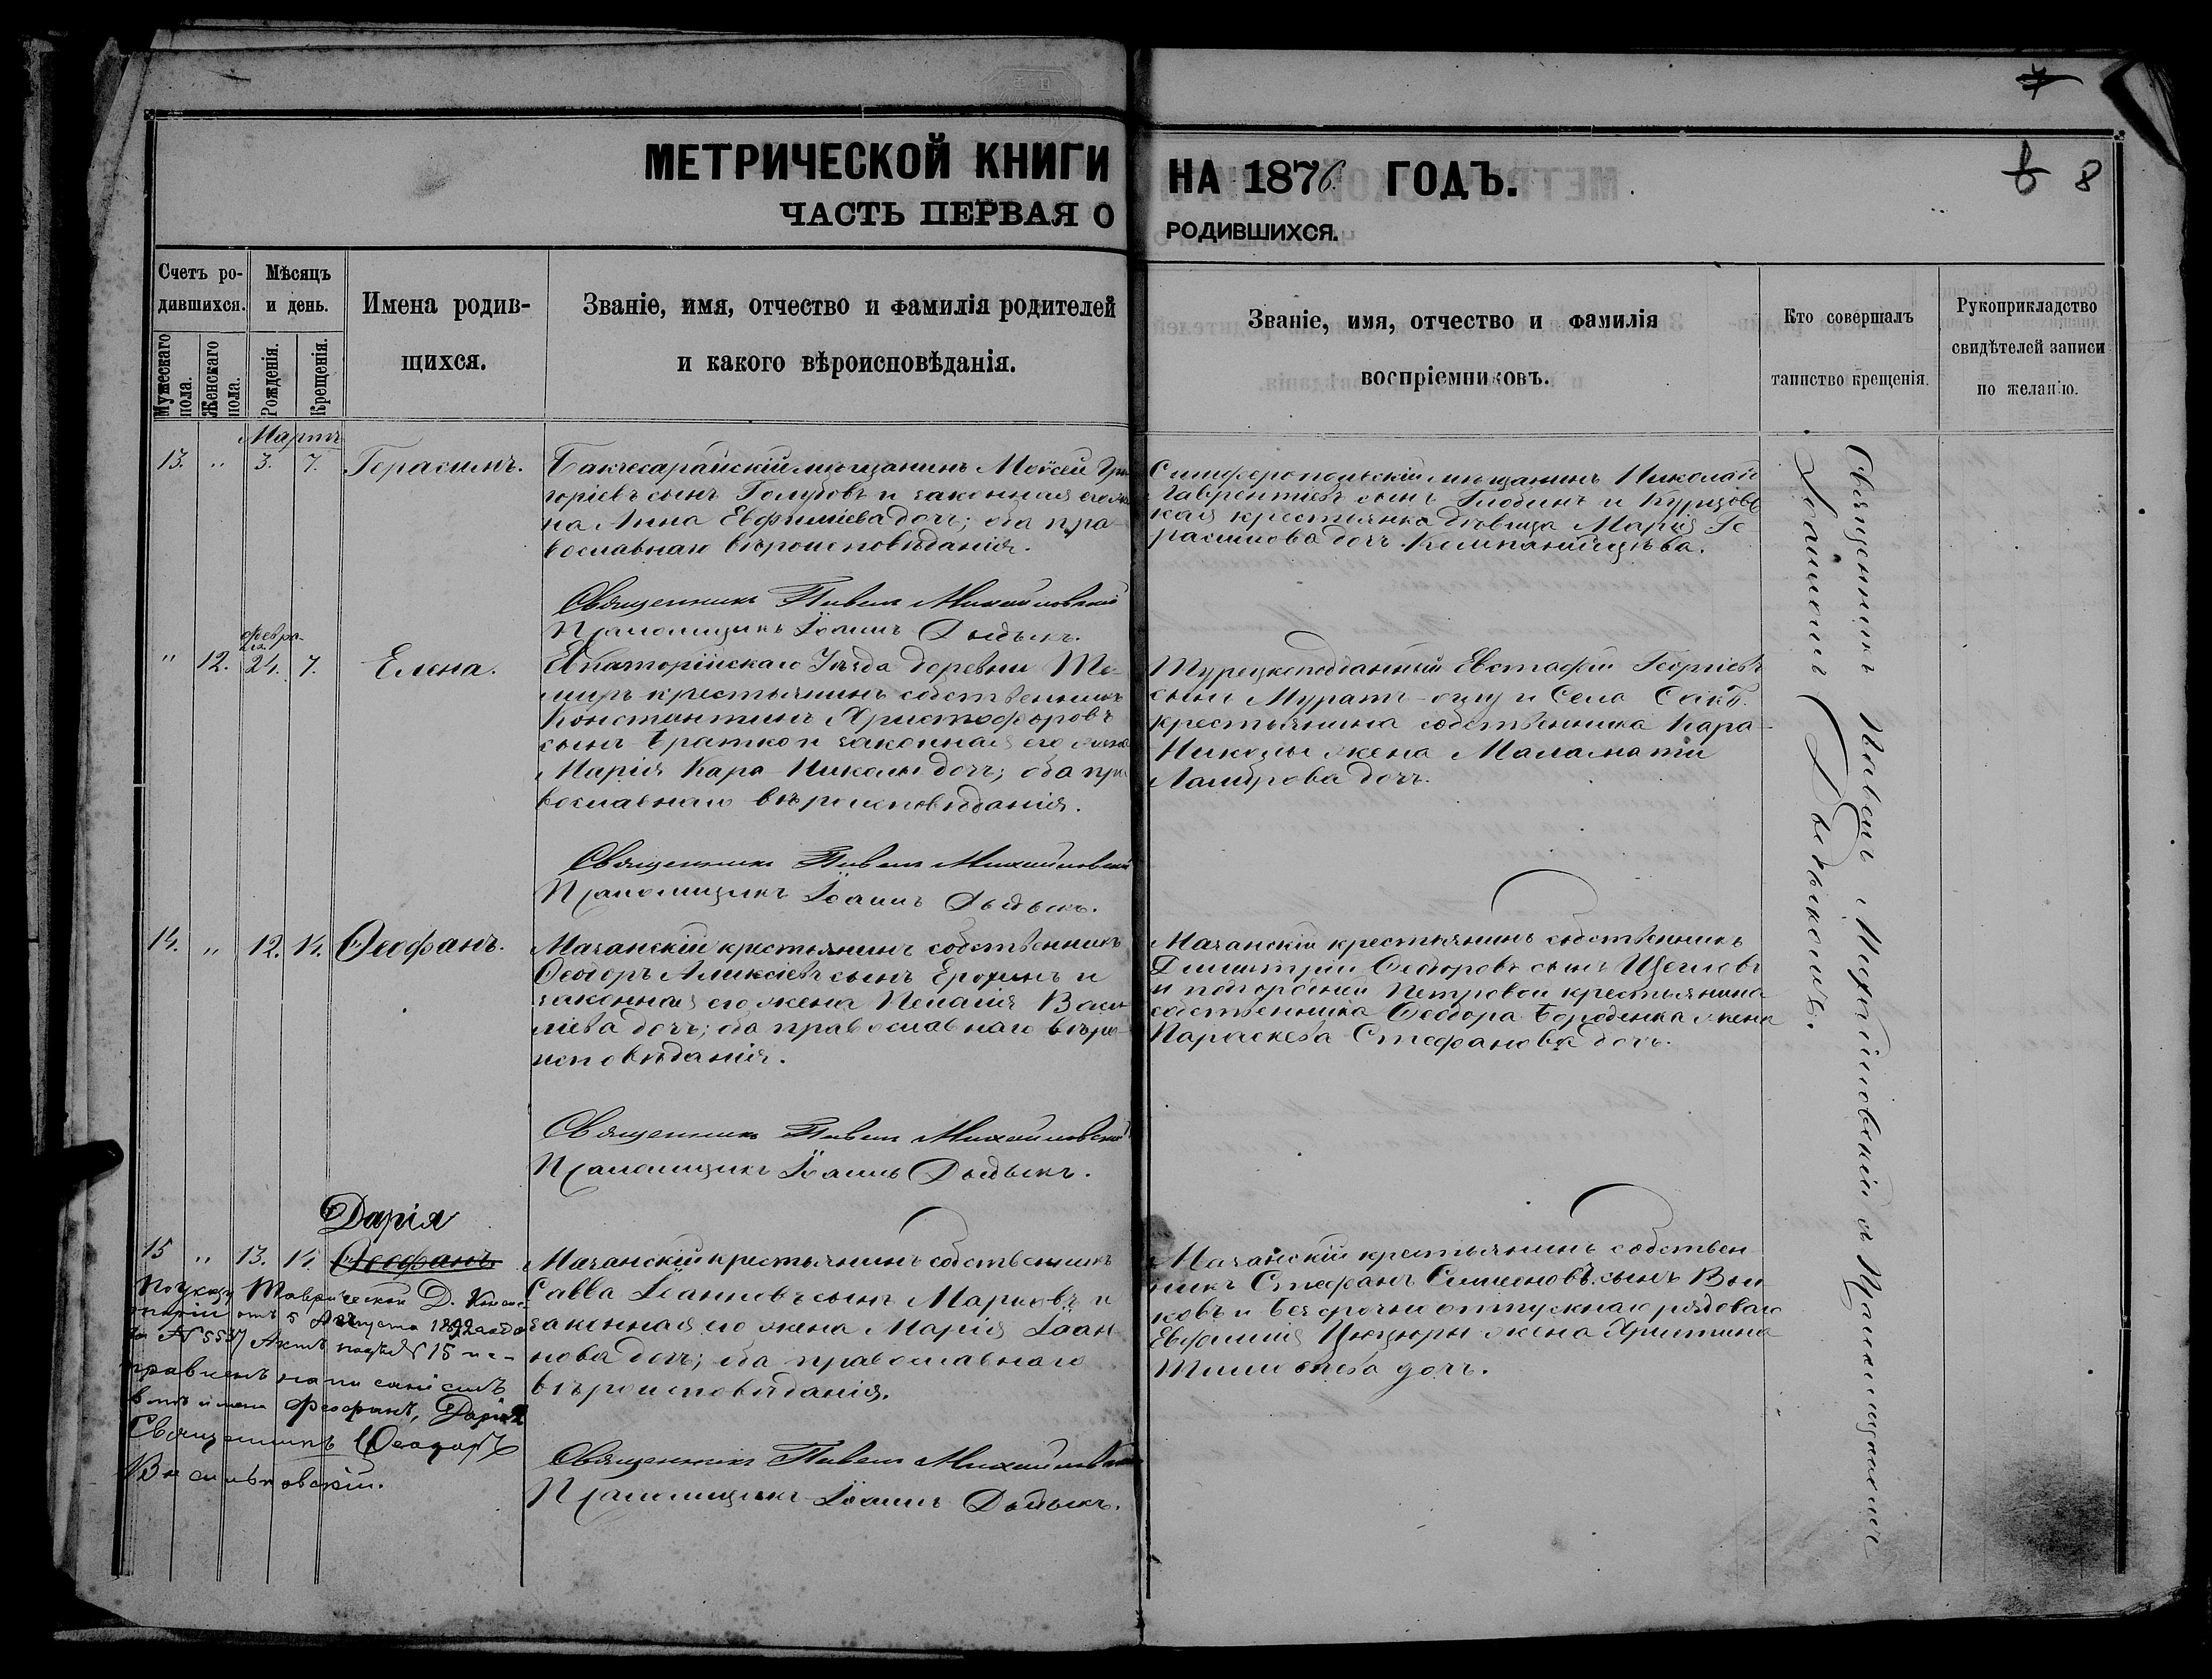 7
6 8
МЕТРИЧЕСКОЙ КНИГИ НА 1876 ГОДЪ.
ЧАСТЬ ПЕРВАЯ О РОДИВШИХСЯ.
Счетъ ро-
дившихся.
Мужескаго пола.
Женскаго пола.
Мѣсяцъ
и день.
Рожденія.
Крещенія.
Имена родив-
шихся.
Званіе, имя, отчество и фамилія родителей
и какого вѣроисповѣданія.
Званіе, имя, отчество и фамилія
воспріемниковъ.
Кто совершалъ
таинство крещенія.
Рукоприкладство
свидѣтелей записи
по желанію.
Мартъ
13. „ 3. 7. Герасимъ.
Бахчесарайскій мѣщанинъ Моисей Гри
горіевъ сынъ Голубовъ и законная его же
на Анна Евфиміева дочь; оба пра-
вославнаго вѣроисповѣданія.
Священникъ Павелъ Михайловскій
Псаломщикъ Іоаннъ Дыдыкъ.
Симферопольскій мѣщанинъ Николай
Лаврентіевъ сынъ и Курцовс
кая крестьянка дѣвица Марія Ге
расимова дочь
Февра-
ля
„ 12. 24. 7. Елена.
Евпаторійскаго Уѣзда деревни
крестьянинъ собственникъ
Константинъ Христофоровъ
сынъ и законная его жена
Марія Кара-Николы дочь; оба пра
вославнаго вѣроисповѣданія.
Священникъ Павелъ Михайловскій
Псаломщикъ Іоаннъ Дыдыкъ.
Турецкоподданный Евстафій Георгіевъ
сынъ Муратъ-оглу и Села
крестьянина собственника Кара-
Николы жена Маламати
Ламброва дочь.
14. „ 12. 14. Ѳеофанъ.
Мазанскій крестьянинъ собственникъ
Ѳеодоръ Алексіевъ сынъ Ерохинъ и
законная его жена Пелагія Васи-
ліева дочь; оба православнаго вѣро-
исповѣданія.
Священникъ Павелъ Михайловскій
Псаломщикъ Іоаннъ Дыдыкъ.
Мазанскій крестьянинъ собственникъ
Димитрій Ѳеодоровъ сынъ Щегловъ
и Петровой крестьянина
собственника Ѳеодора Бороденка жена
Параскева Стефанова дочь.
Дарія
15 „ 13. 14. Ѳеофанъ
Мазанскій крестьянинъ собственникъ
Савва Іоанновъ сынъ Марковъ и
законная его жена Марія Іоан-
нова дочь; оба православнаго
вѣроисповѣданія.
Священникъ Павелъ Михайловскій
Псаломщикъ Іоаннъ Дыдыкъ.
Мазанскій крестьянинъ собствен
никъ Стефанъ Симеоновъ сынъ Вол
ковъ и безсрочно отпускнаго рядоваго
Евфимія Цюцюры жена Христина
Тимофеева дочь.
По указу Таврической Д. Консис-
торіи отъ 5 Августа 1892 года
за № 5537 Актъ подъ № 15 ис-
правленъ написаніемъ
вмѣсто имени Феофанъ, Дарія
Священникъ Ѳеодоръ
Васильковскій.
Священникъ Павелъ Михайловскій съ Псаломщикомъ
Іоанномъ Дыдыкомъ.